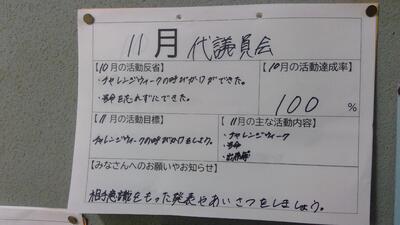 11月 代議員会
【10月の活動反省】
・チャレンジウィークの呼びかけができた。
・号令を忘れずにできた。
【10月の活動達成率】
100 %
【11月の活動目標】
チャレンジウィークの呼びかけをしよう。
【11月の主な活動内容】
・チャレンジウィーク
・号令
【みなさんへのお願いやお知らせ】
相手意識をもった発表やあいさつをしましょう。